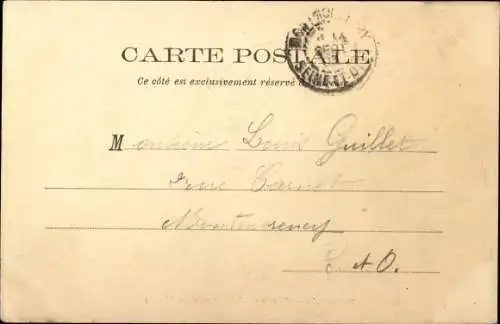 CARTE POSTALE
Ce côté est exclusivement réservé à
SEINE-ET-O
14
Monsieur Louis Guillet
rue Carnot
Montmorency
S. et O.